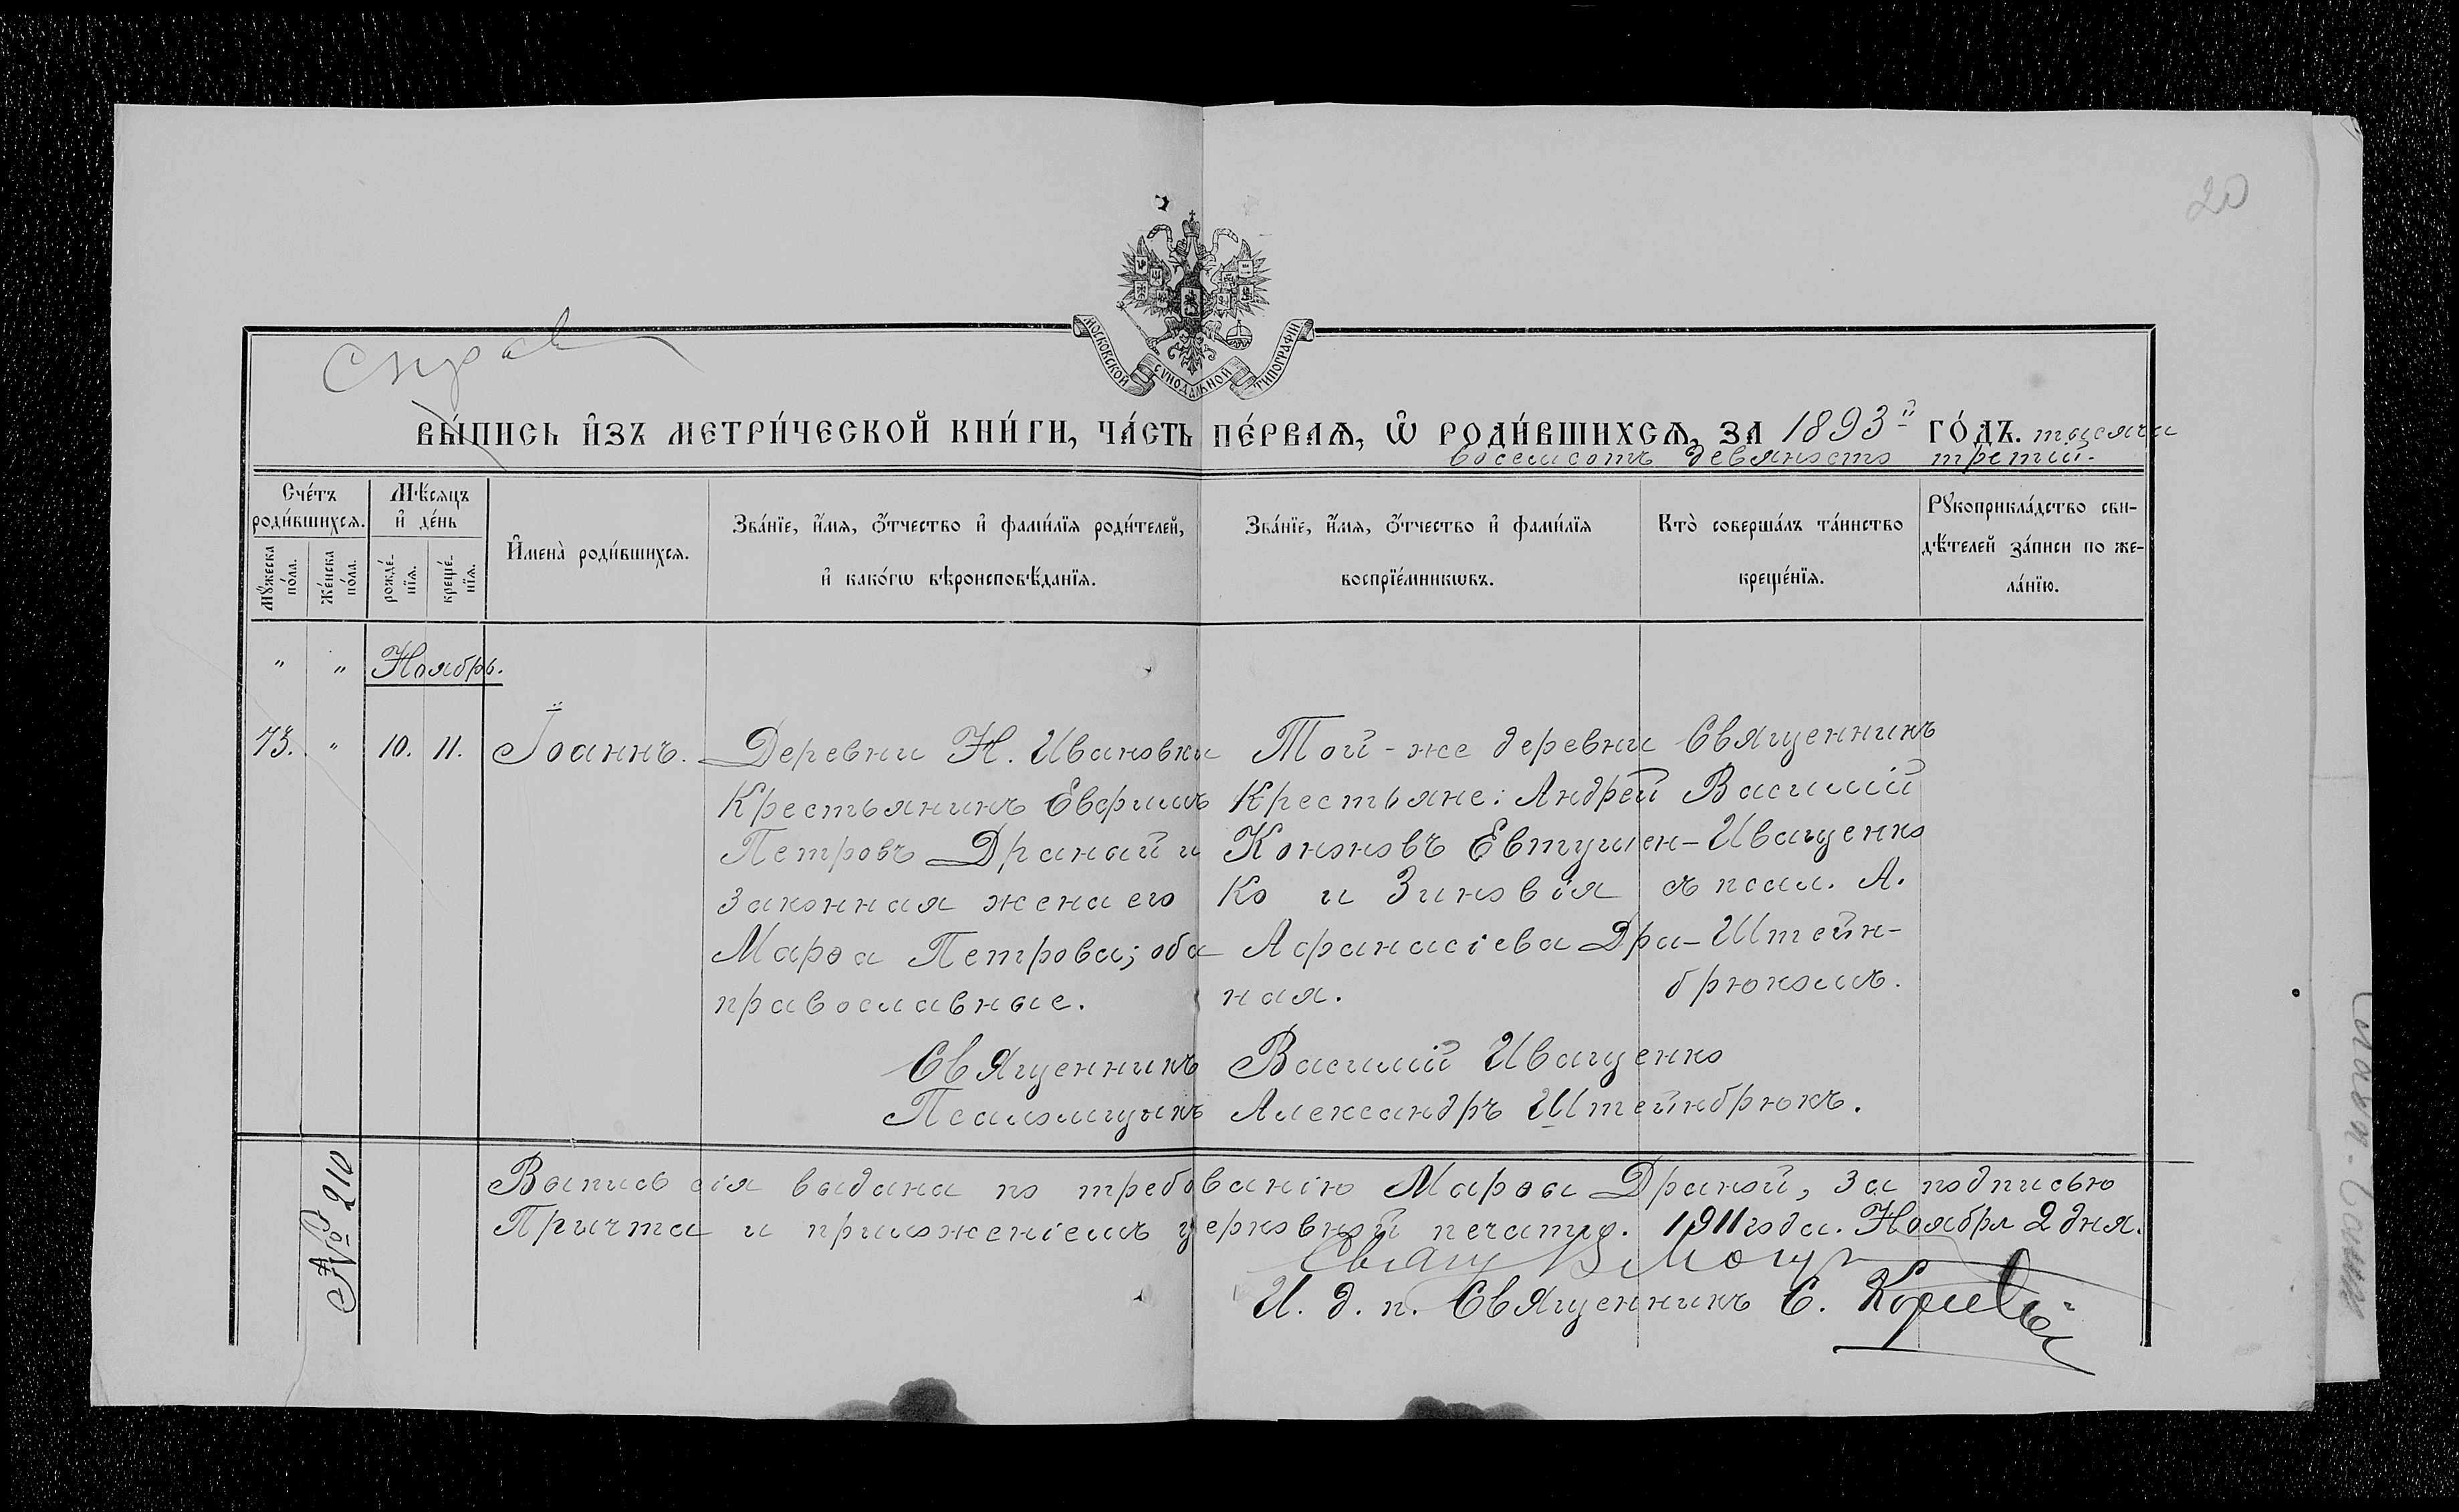 20
МОСКОВСКОЙ СѴНОДАЛЬНОЙ ТИПОГРАФІИ
Справ
ВЫ́ПИСЬ И҆ЗЪ МЕТРИ́ЧЕСКОЙ КНИ́ГИ, ЧА́СТЬ ПЕ́РВАѦ, Ѡ҆ РОДИ́ВШИХСѦ, ЗА 1893й ГО́ДЪ. тысяча
восемьсотъ девяносто третій.
Сче́тъ роди́вшихсѧ.
Мꙋ́жеска по́ла.
Же́нска по́ла.
Мѣ́сѧцъ и҆ де́нь
рожде́нїѧ.
креще́нїѧ.
И҆мена̀ роди́вшихсѧ.
Зва́нїе, и҆́мѧ, ѻ҆́тчество и҆ фами́лїѧ роди́телей,
и҆ како́гѡ вѣроисповѣ́данїѧ.
Зва́нїе, и҆́мѧ, ѻ҆́тчество и҆ фами́лїѧ
воспрїе́мникѡвъ.
Кто̀ соверша́лъ та́инство
креще́нїѧ.
Рꙋкоприкла́дство сви-
дѣ́телей за́писи по же-
ла́нїю.
" " Ноябрь.
73. " 10. 11. Іоаннъ.
Деревни Н. Ивановки
Крестьянинъ Евфимъ
Петровъ Драный и
законная жена его
Марѳа Петрова; оба
православные.
Той-же деревни
Крестьяне: Андрей
Кононовъ Евтушен-
ко и Зиновія
Афанасіева Дра-
ная.
Священникъ
Василій
Иващенко
съ псал. А.
Штейн-
брюкомъ.
Священникъ Василій Иващенко
Псаломщикъ Александръ Штейнбрюкъ.
№ 210
Выпись сія выдана по требованію Марѳы Драной, за подписью
Причта и приложеніемъ церковной печатью. 1911 года. Ноября 2 дня.
Свящ
И. д. п. Священникъ С.